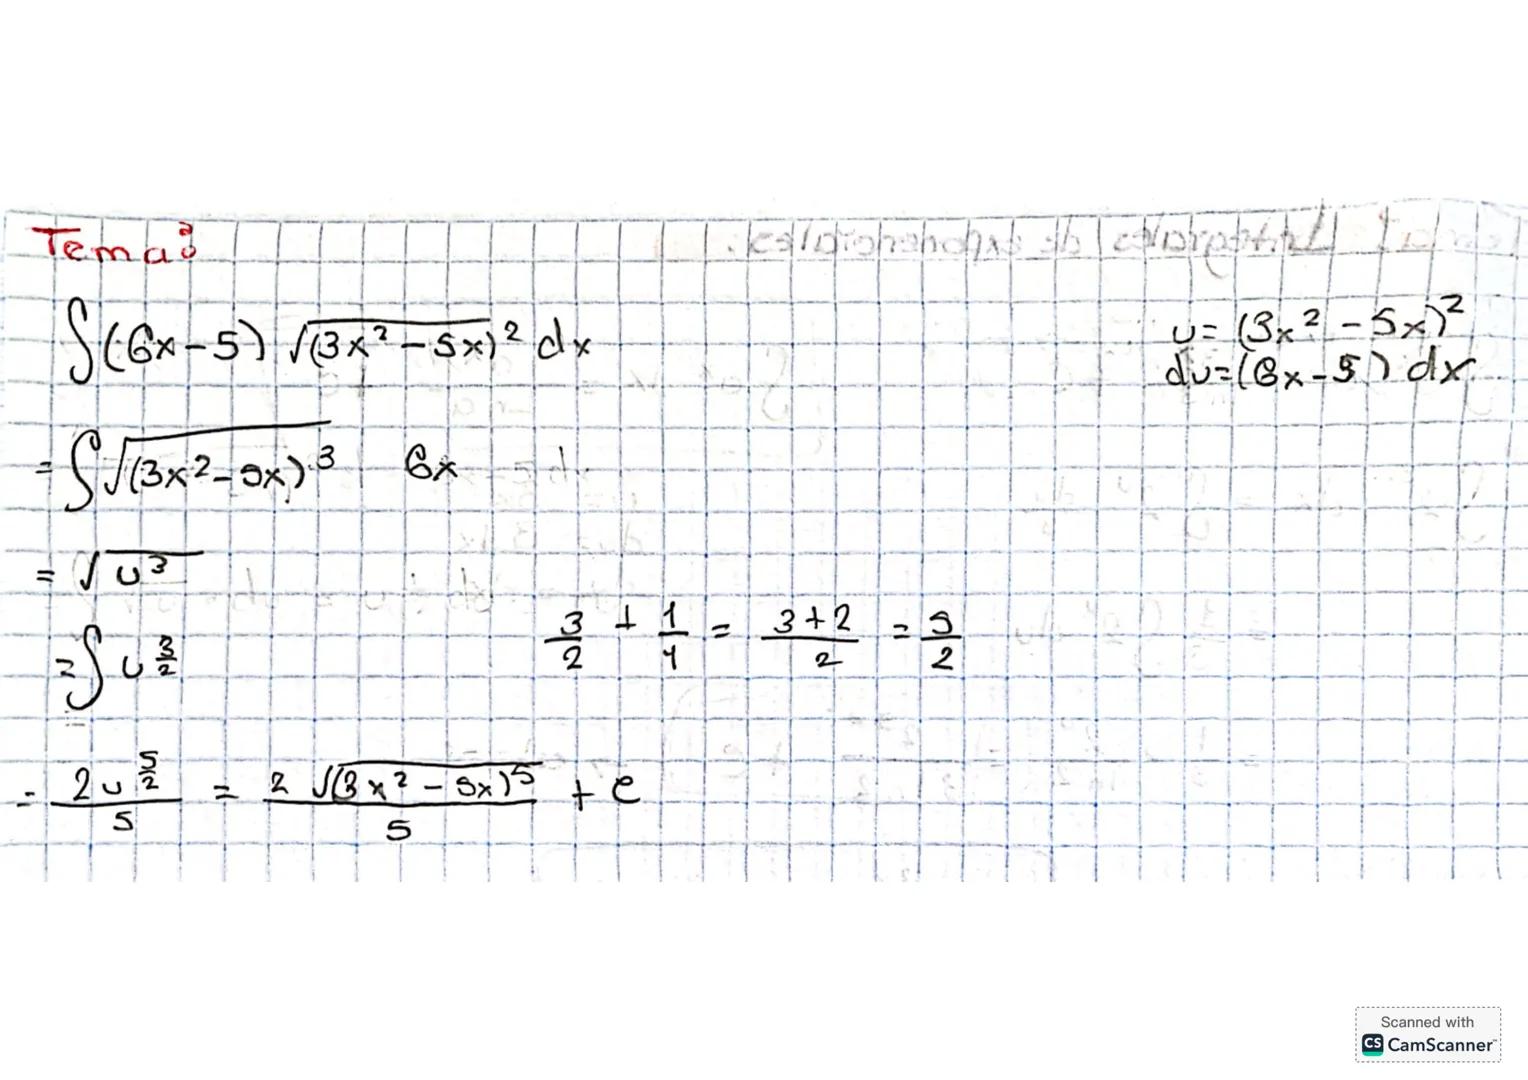 Tema:
∫(6x-5) √(3x²-5x)² dx
u=(3x²-5x)²
du=(6x-5) dx
=∫√(3x²-5x)³ 6x
=√u³
=∫u^(3/2)
3/2 + 1/1 = (3+2)/2 = 5/2
= 2u^(5/2)/5 = 2√(3x²-5x)⁵/5 + c
Scanned with
CS CamScanner